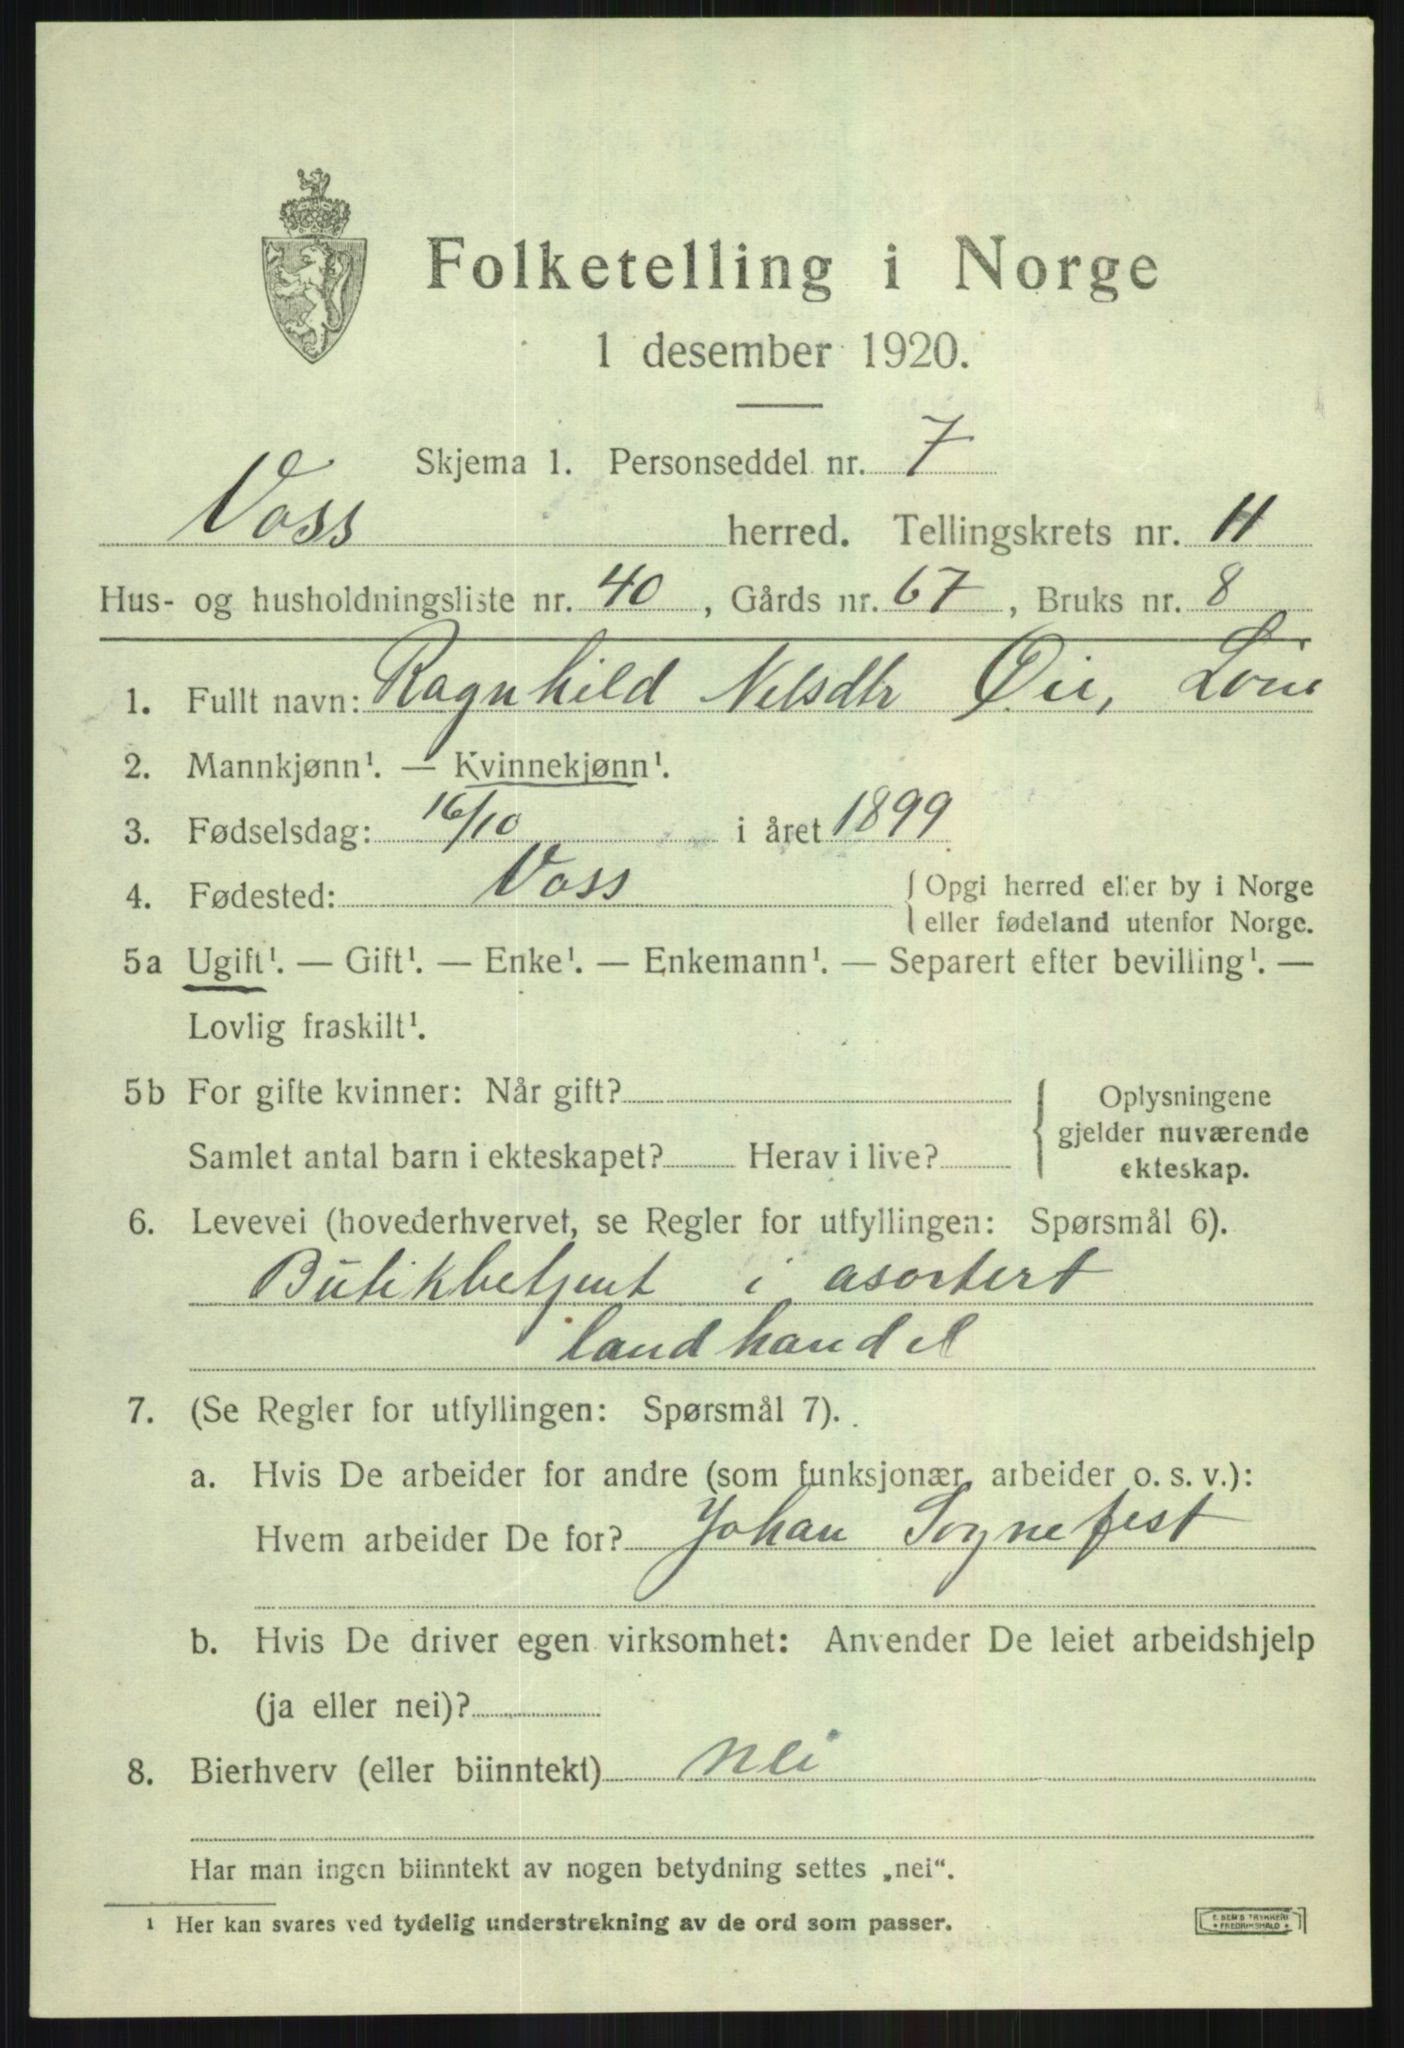 Folketelling i Norge
1 desember 1920.
Skjema 1. Personseddel nr. 7
Voss herred. Tellingskrets nr. 11
Hus- og husholdningsliste nr. 40, Gårds nr. 67, Bruks nr. 8
1. Fullt navn: Ragnhild Nelsdtr Øie, Lône
2. Mannkjønn¹. — Kvinnekjønn¹.
3. Fødselsdag: 16/10 i året 1899
4. Fødested: Voss { Opgi herred eller by i Norge
eller fødeland utenfor Norge.
5a Ugift¹. — Gift¹. — Enke¹. — Enkemann¹. — Separert efter bevilling¹. —
Lovlig fraskilt¹.
5b For gifte kvinner: Når gift?
Samlet antal barn i ekteskapet? Herav i live?
{ Oplysningene
gjelder nuværende
ekteskap.
6. Levevei (hovederhvervet, se Regler for utfyllingen: Spørsmål 6).
Butikbetjent i asortert
landhandel
7. (Se Regler for utfyllingen: Spørsmål 7).
a. Hvis De arbeider for andre (som funksjonær, arbeider o. s. v.):
Hvem arbeider De for? Johan Sognefest
b. Hvis De driver egen virksomhet: Anvender De leiet arbeidshjelp
(ja eller nei)?
8. Bierhverv (eller biinntekt) nei
Har man ingen biinntekt av nogen betydning settes „nei“.
¹ Her kan svares ved tydelig understrekning av de ord som passer.
E SEM'S TRYKKERI
FREDRIKSHALD